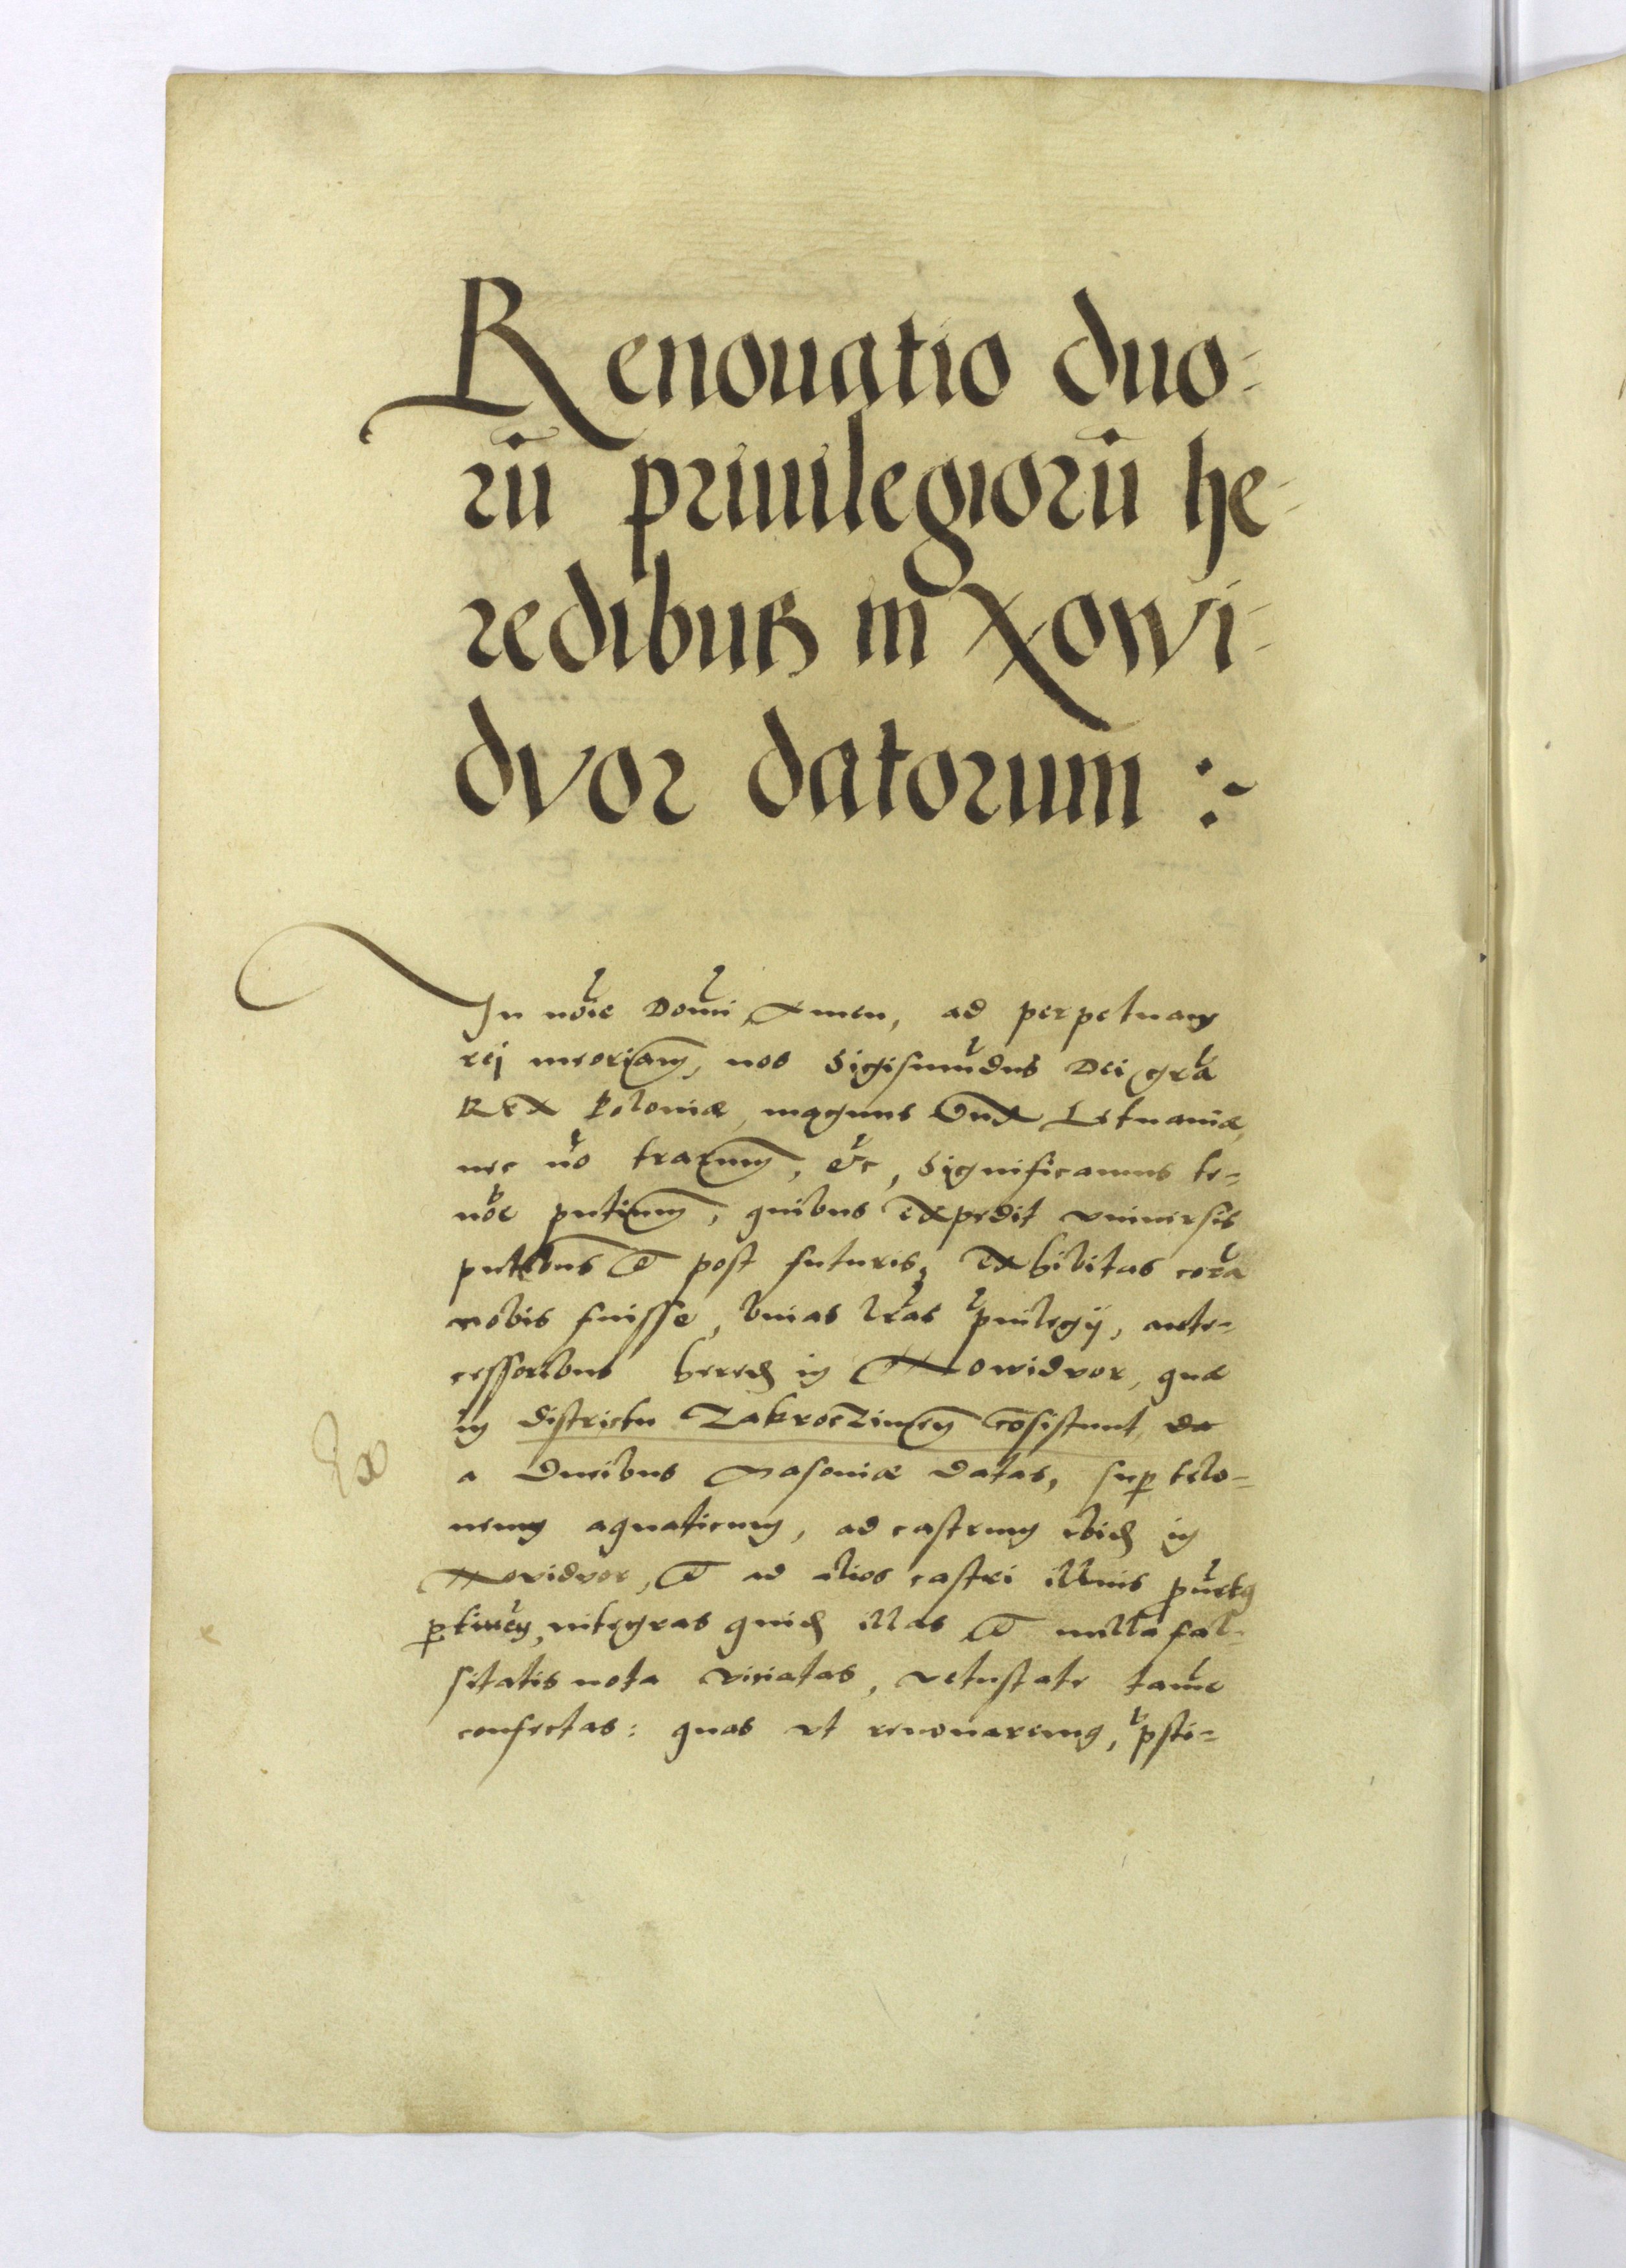 Renouatio duo-
rū priuilegiorū he-
redibus in Nowi-
dvor datorum :~
In noīe Domī Amen, ad perpetuam
rej meoriam, nos Sigismūdus Dei gr̄a
REX Poloniæ, magnus Dux Letuaniæ,
nec nō trarum, etc, Significamus te-
nōe pntium, quibus expedit vniuersis
pntibus et post futuris, Exhibitas corā
nobis fuisse, binas lr̄as p̄uilegÿ, ante-
cessoribus hered in Nowidvor, quæ
in districtu Zakroczimen cōsistunt, de
a Ducibus Masoniæ datas, sup telo-
neum aquaticum, ad castrum ibid in
Novidvor, et ad alios castri illius prouēt9
ptinen, integras quid illas et nulla fal-
sitatis nota viciatas, vetustate tamē
confectas: quas vt renouarem9, p̄sti-
Ex